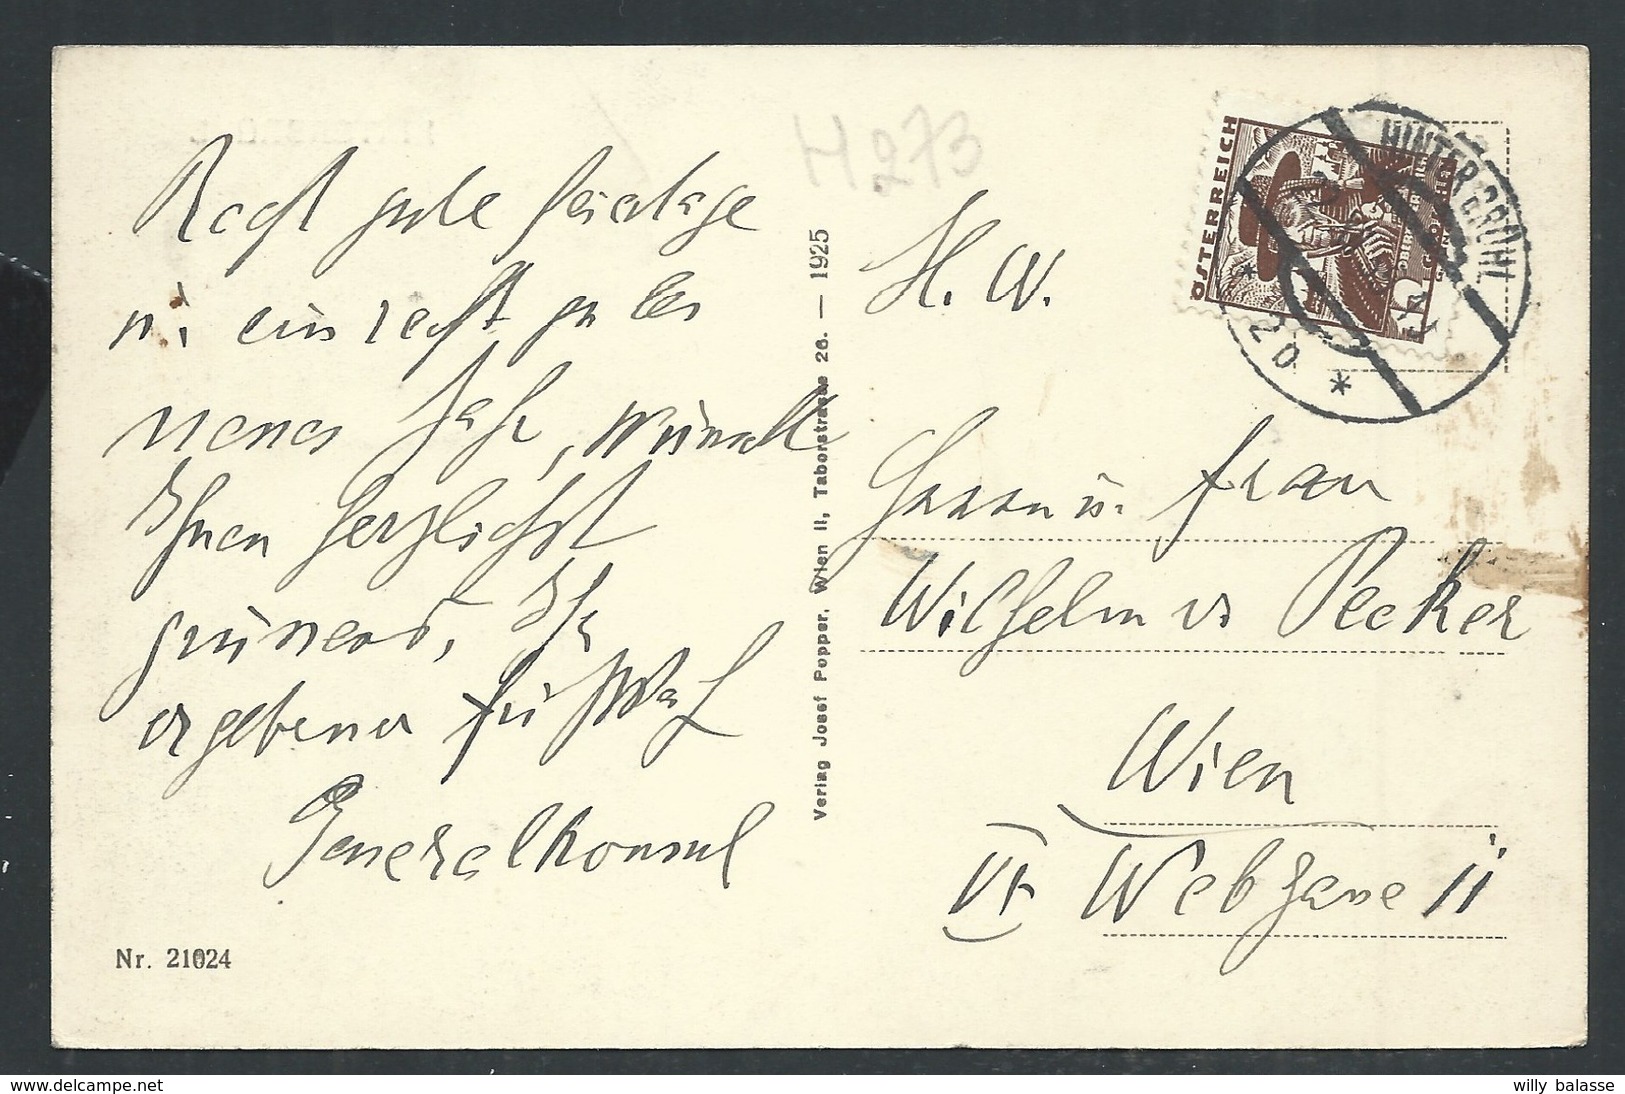 H273
Recht gute Feiertage
u. ein recht gutes
neues Jahr, wünscht
Ihnen herzlichst
grüssend, Ihr
ergebener
Generalkonsul
Nr. 21024
Verlag Josef Popper, Wien II, Taborstrasse 26. — 1925
H. W.
Herrn u. Frau
Wilhelm Pecker
Wien
VI Webgasse 11
ÖSTERREICH
HINTERBRÜHL
* 20 *
willy balasse